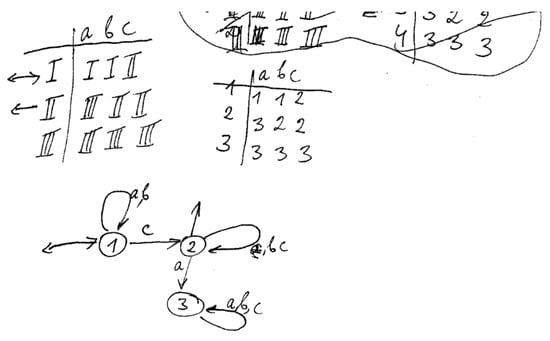 a b c
↔ I I I II
← II III II II
III III III III
III II II
II III III III
3 3 2 2
4 3 3 3
a b c
1 1 1 2
2 3 2 2
3 3 3 3
a,b
1 c 2
b c
a
3 a,b,c